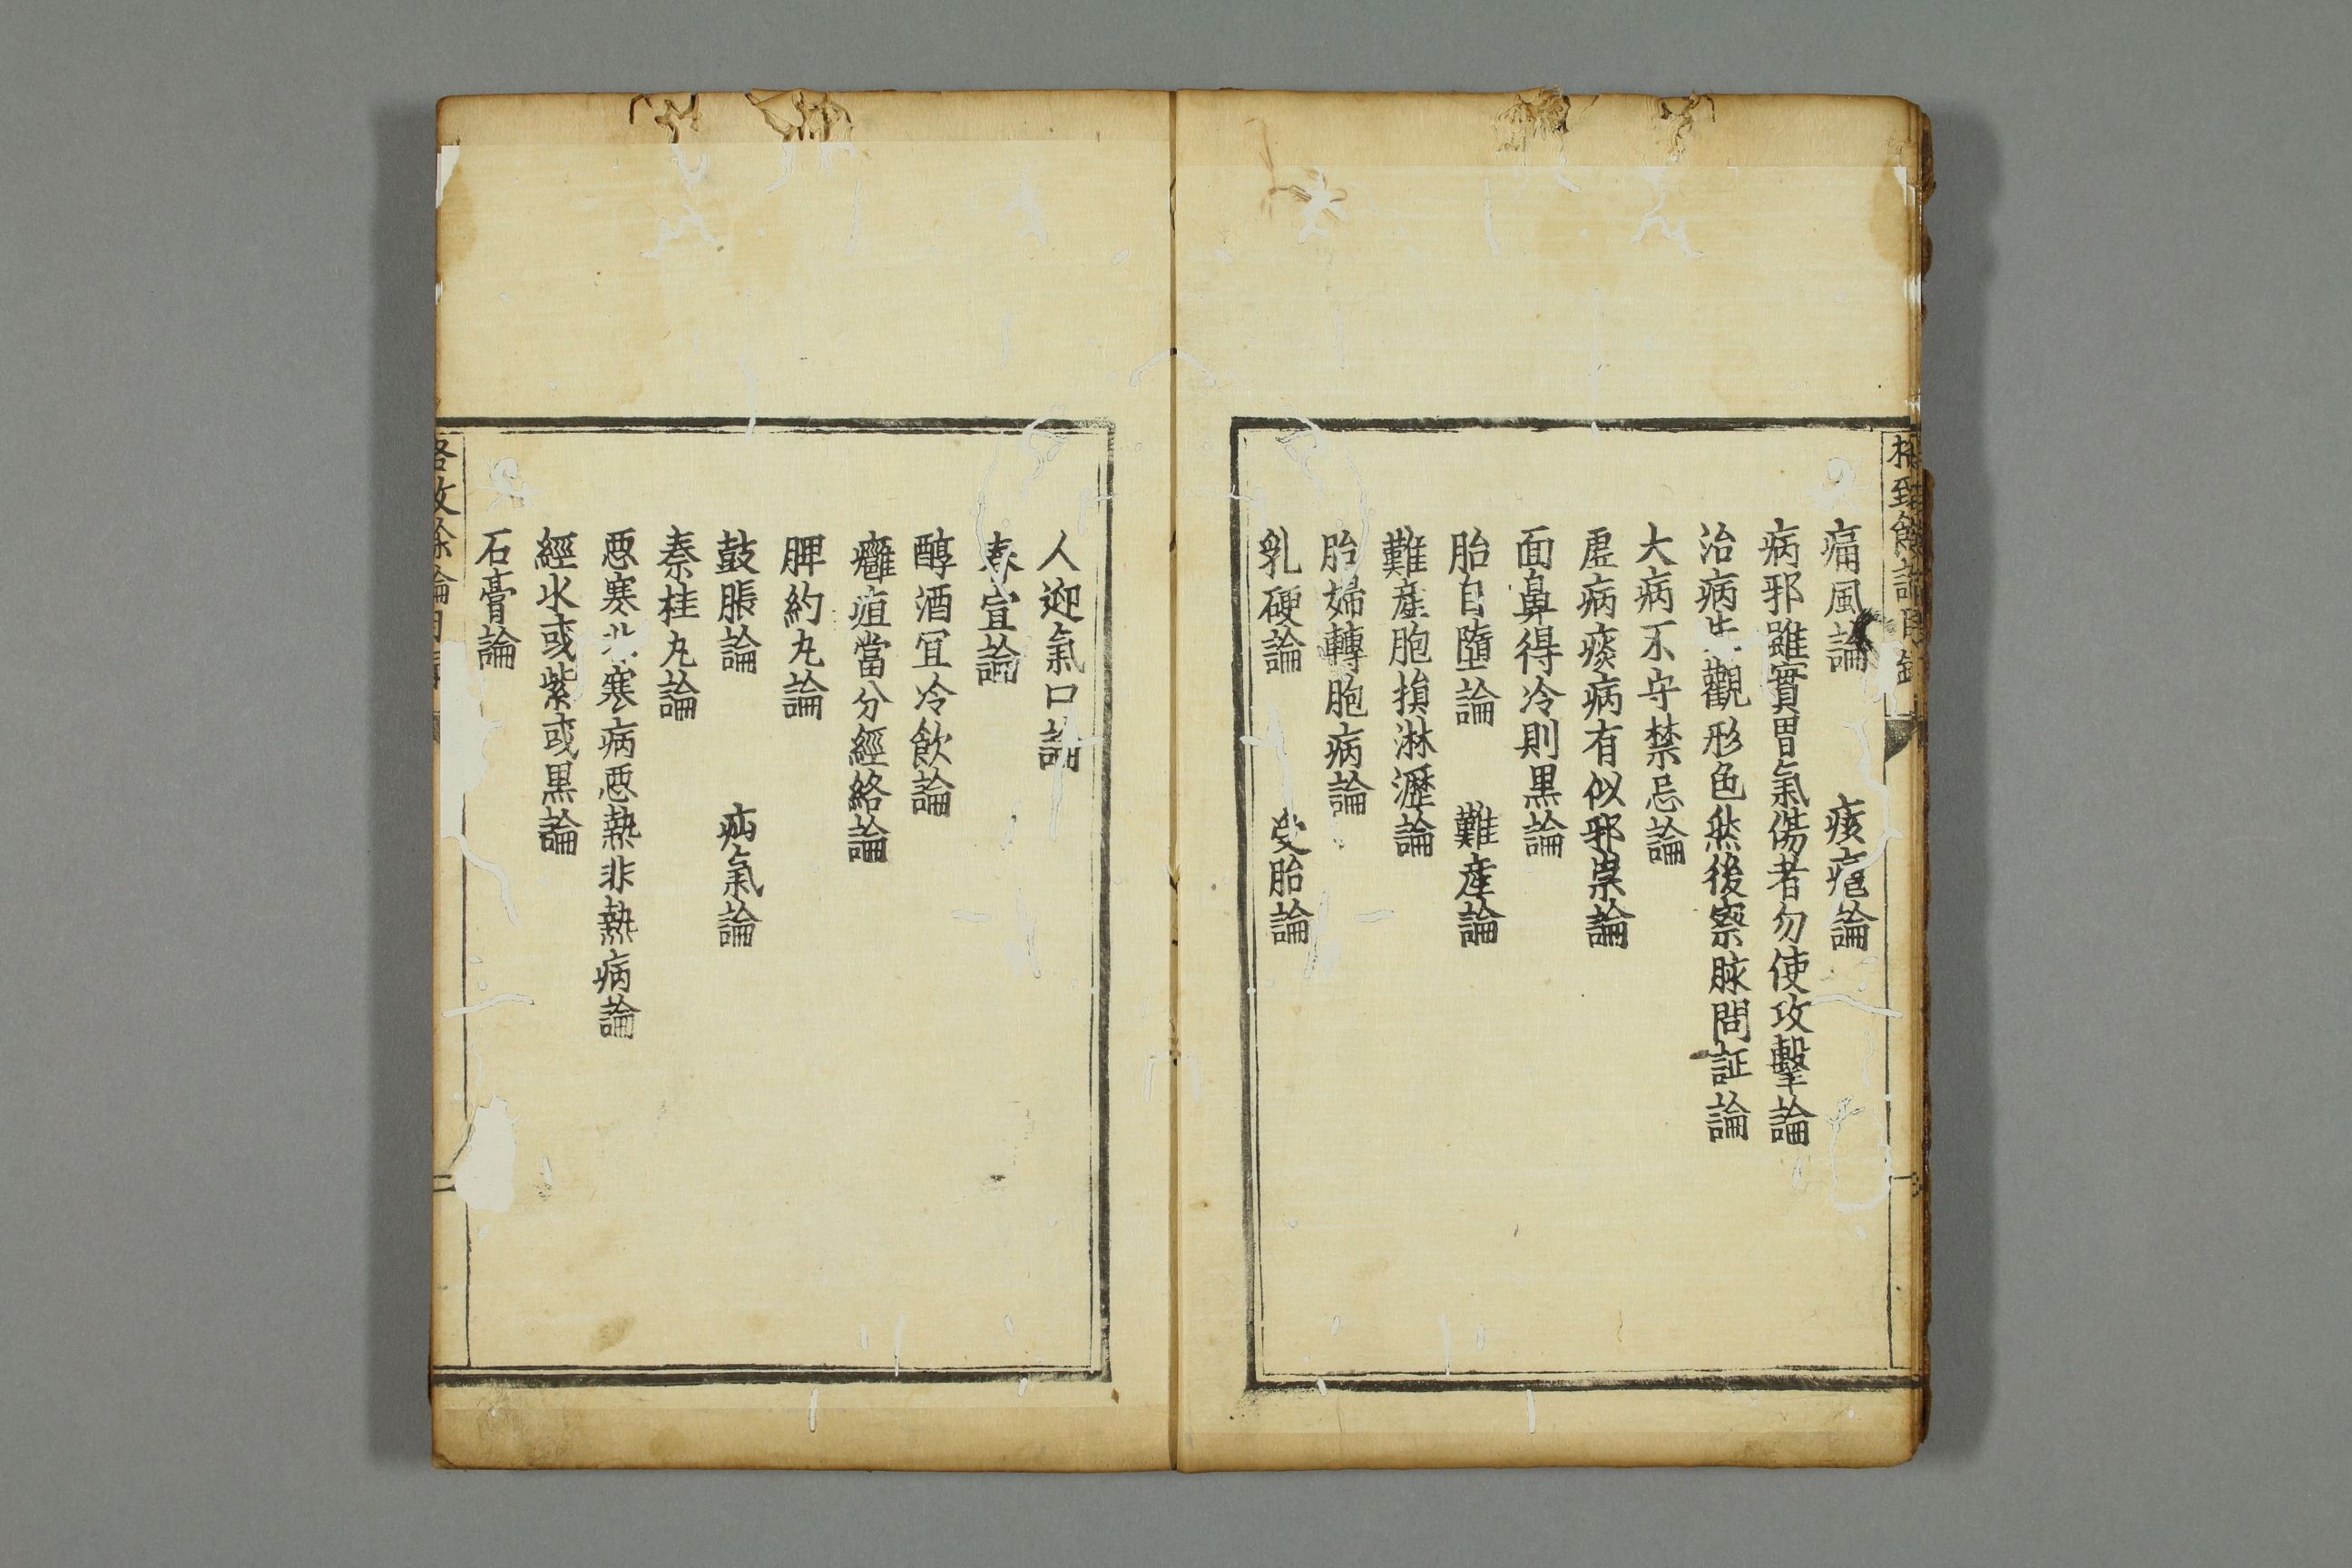 格致餘論目錄
痛風論 痎瘧論
病邪雖實胃氣傷者勿使攻擊論
治病先觀形色然後察脉問証論
大病不守禁忌論
虛病痰病有似邪祟論
面鼻得冷則黑論
胎自墮論 難產論
難產胞損淋瀝論
胎婦轉胞病論
乳硬論 受胎論
人迎氣口論
春宣論
醇酒冝冷飲論
癰疽當分經絡論
脾約丸論
鼓脹論 疝氣論
秦桂丸論
惡寒非寒病惡熱非熱病論
經水或紫或黑論
石膏論
格致餘論目
二